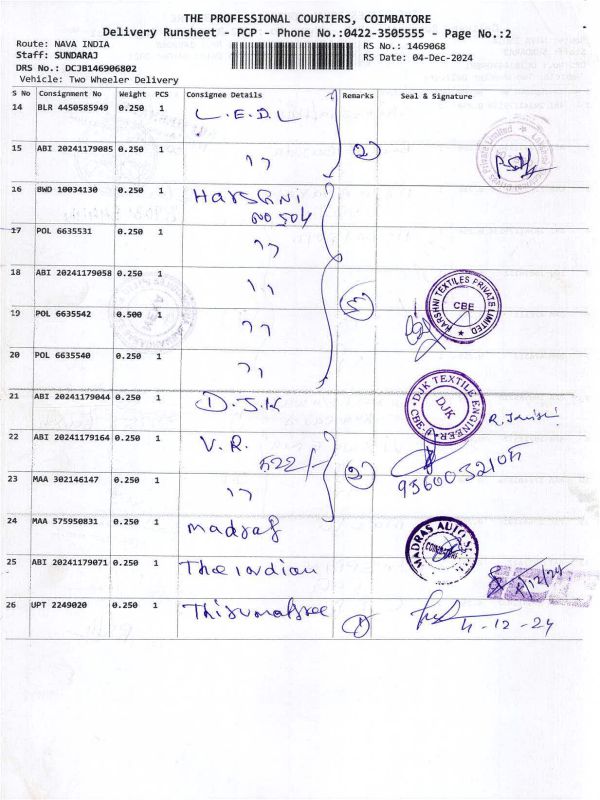 THE PROFESSIONAL COURIERS, COIMBATORE
Delivery Runsheet - PCP - Phone No.:0422-3505555 - Page No.:2
Route: NAVA INDIA
RS No.: 1469068
Staff: SUNDARAJ
RS Date: 04-Dec-2024
DRS No.: DCJB146906802
Vehicle: Two Wheeler Delivery
S No Consignment No Weight PCS Consignee Details Remarks Seal & Signature
14 BLR 4450585949 0.250 1 L.E.D.L
15 ABI 20241179085 0.250 1 " 2
16 BWD 10034130 0.250 1 HarshNi
NO 504
17 POL 6635531 0.250 1 "
18 ABI 20241179058 0.250 1 "
HARSHNI TEXTILES PRIVATE LIMITED
CBE
19 POL 6635542 0.500 1 "
20 POL 6635540 0.250 1 "
21 ABI 20241179044 0.250 1 D.J.K
DJK TEXTILE ENGINEER
DJK
CBE-
22 ABI 20241179164 0.250 1 V.R.
522/-
23 MAA 302146147 0.250 1 " 2
24 MAA 575950831 0.250 1 madras
MADRAS AUTO
25 ABI 20241179071 0.250 1 The indian
4/12/24
26 UPT 2249020 0.250 1 Thirumalsree 1
4-12-24